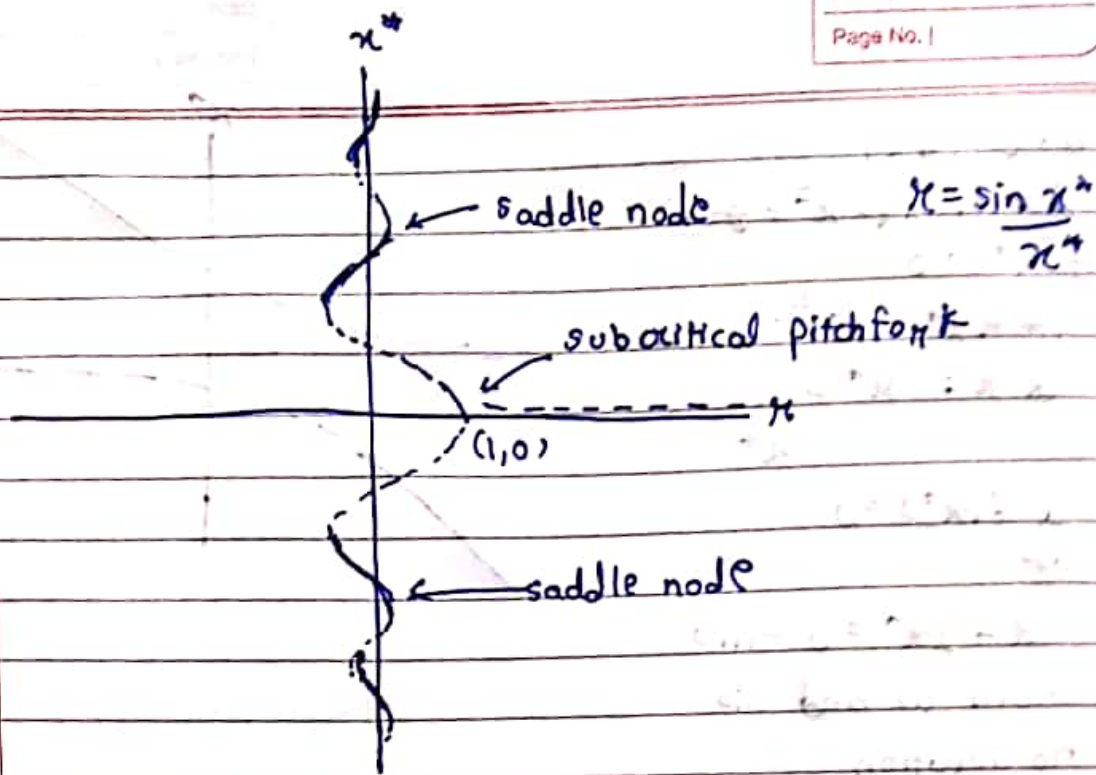 Page No. |
x*
saddle node
r = sin x*
x*
subcritical pitchfork
r
(1,0)
saddle node